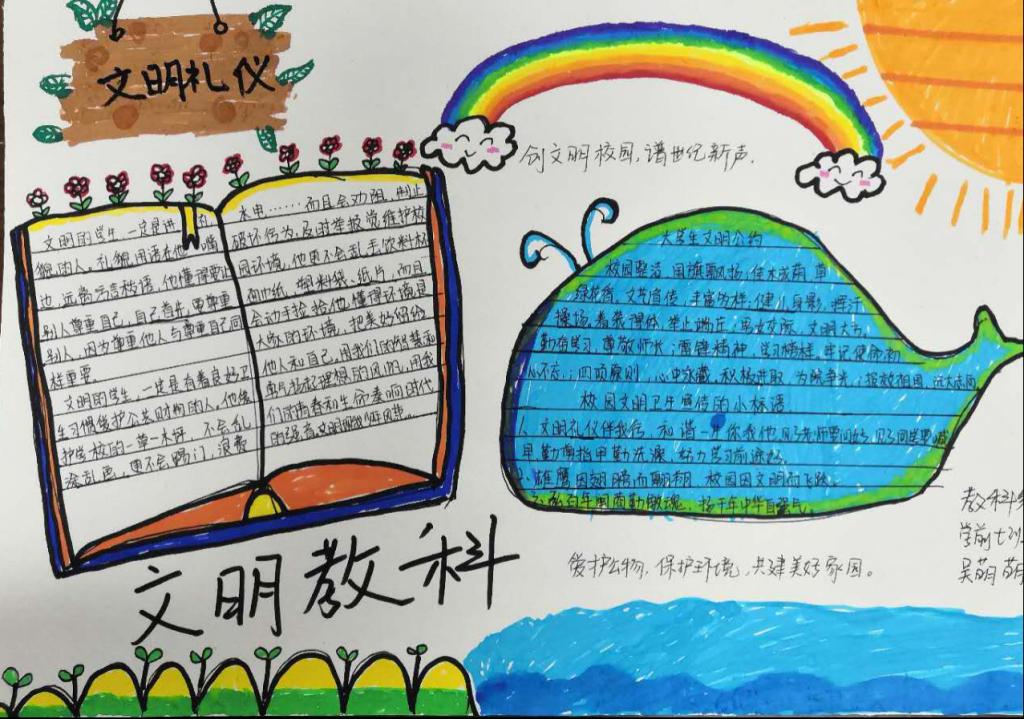 文明礼仪
创文明校园,谱世纪新声.
文明的学生,一定是讲
貌的人。礼貌用语在他嘴
边,远离污言秽语,他懂得要让
别人尊重自己,自己首先要尊重
别人,因为尊重他人与尊重自己同
样重要.
文明的学生,一定是有着良好卫
生习惯爱护公共财物的人。他爱
护学校的一草一木,不会乱
涂乱画,更不会踢门,浪费
水电……而且会劝阻,制止
破坏行为,及时举报党维护校
园环境,他更不会乱丢饮料杯
面巾纸、塑料袋、纸片,而且
会动手捡拾,他懂得环境是
大家的环境,把美好留给
他人和自己,用我们的智慧和
大学生文明公约
校园整洁,国旗飘扬;佳木成荫,草
绿花香,文艺宣传,丰富多样;健儿身影,挥汗
操场,着装得体,举止端庄;男女交际,文明大方,
勤奋学习,尊敬师长;雷锋精神,学习榜样,牢记使命初
心不忘;四项原则,心中永藏,积极进取,为院争光;报效祖国,远大志向
校园文明卫生宣传的小标语
1、文明礼仪伴我行,和谐一年你我他
早,勤剪指甲勤洗澡,努力学习前途好.
2、雄鹰因翅膀而翱翔,校园因文明而飞跃.
文明教科
爱护公物,保护环境,共建美好家园。
教科
学前七班
吴萌萌